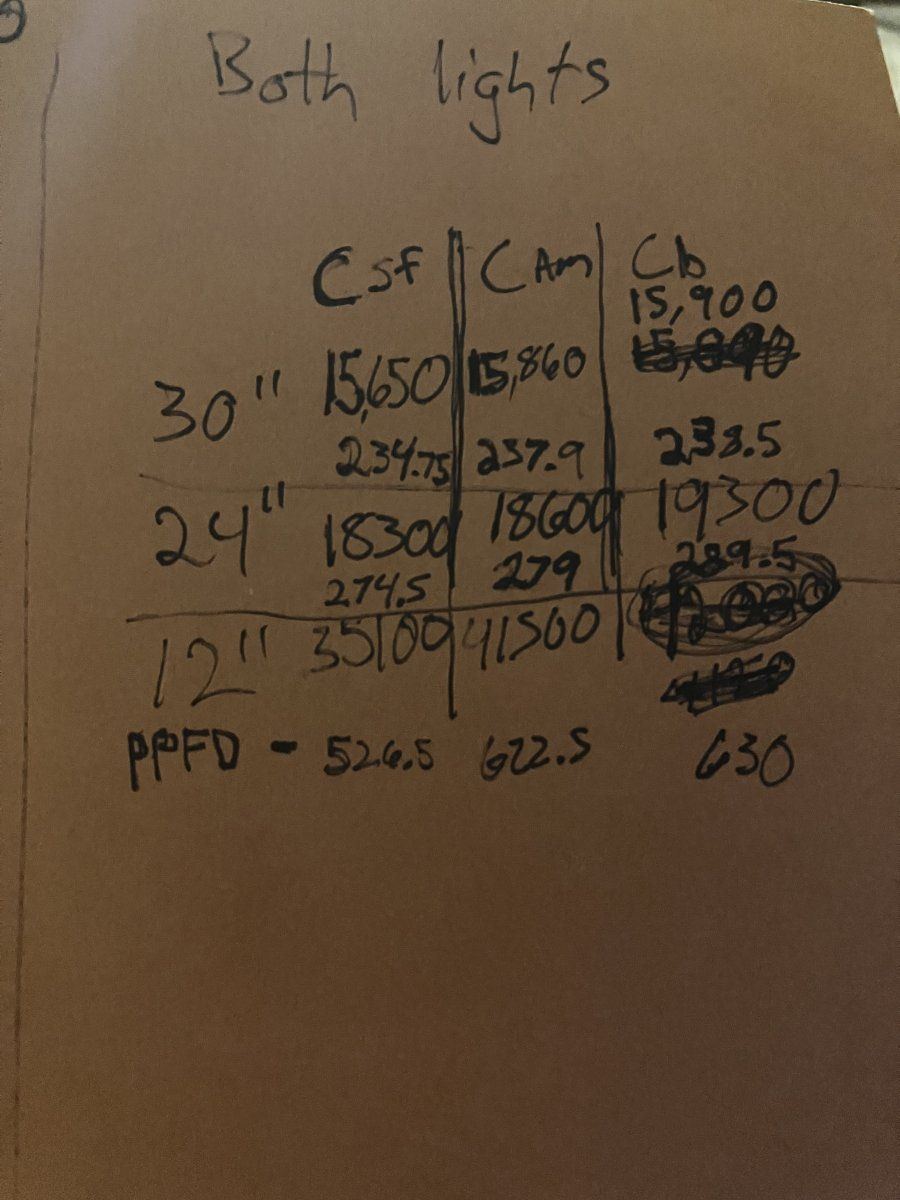 Both lights
Csf CAm Cb
15,900
30" 15,650 15,860
234.75 237.9 238.5
24" 18300 18600 19300
274.5 279 289.5
12" 35100 41500
PPFD - 526.5 622.5 630